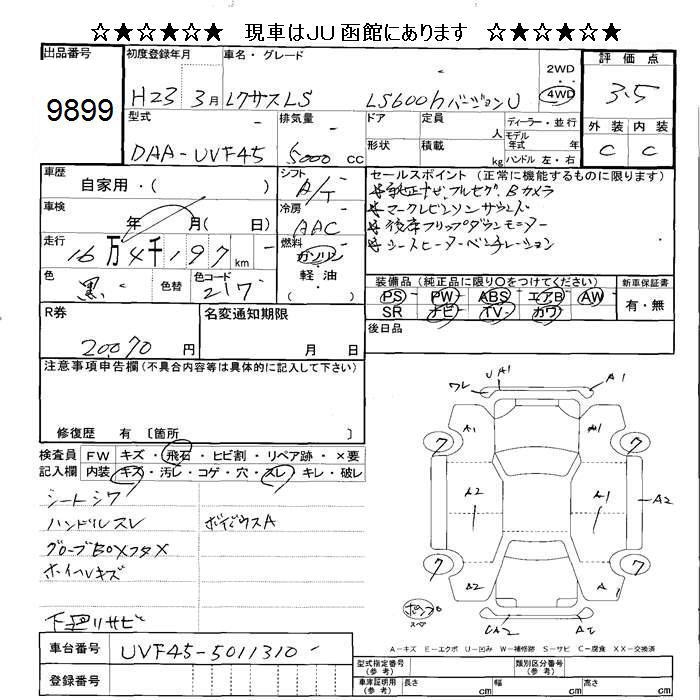 ☆★☆★☆★ 現車はJU函館にあります ☆★☆★☆★
出品番号 初度登録年月 車名・グレード 評価点
9899 H23 3月 レクサスLS LS600hバージョンU 2WD 4WD 3.5
型式 排気量 ドア 定員 人 ディーラー・並行 外装 内装
DAA-UVF45 5000 cc 形状 積載 kg モデル年式 年式 ハンドル 左・右 C C
車歴 自家用・( ) シフト A/T セールスポイント (正常に機能するものに限ります)
純正ナビ,フルセグ,Bカメラ
車検 年 月( 日) 冷房 AAC マークレビンソンサウンド
後席フリップダウンモニター
走行 16万4千197km 燃料 ガソリン・軽油・( ) シートヒーターベンチレーション
色 黒 色替 色コード 217
装備品 (純正品に限り○をつけてください) 新車保証書
PS PW ABS エアB AW 有・無
SR ナビ TV カワ
R券 名変通知期限 後日品
20070円 月 日
注意事項申告欄 (不具合内容等は具体的に記入して下さい)
修復歴 有 〔箇所 〕
検査員 FW キズ・飛石・ヒビ割・リペア跡・×要
記入欄 内装 キズ・汚レ・コゲ・穴・スレ・キレ・破レ
シートシワ
ハンドルスレ ボディウスA
グローブBOXフタX
ホイールキズ
下回リサビ
ワレ UA1 A1
A1 A1
7 7
A2 A1 A2
7 7
A2 A
A2
A-キズ E-エクボ U-凹み W-補修跡 S-サビ C-腐食 XX-交換済
車台番号 UVF45-5011310
登録番号
型式指定番号 (参考) 類別区分番号 (参考)
車庫証明用 (参考) 長さ cm 幅 cm 高さ cm